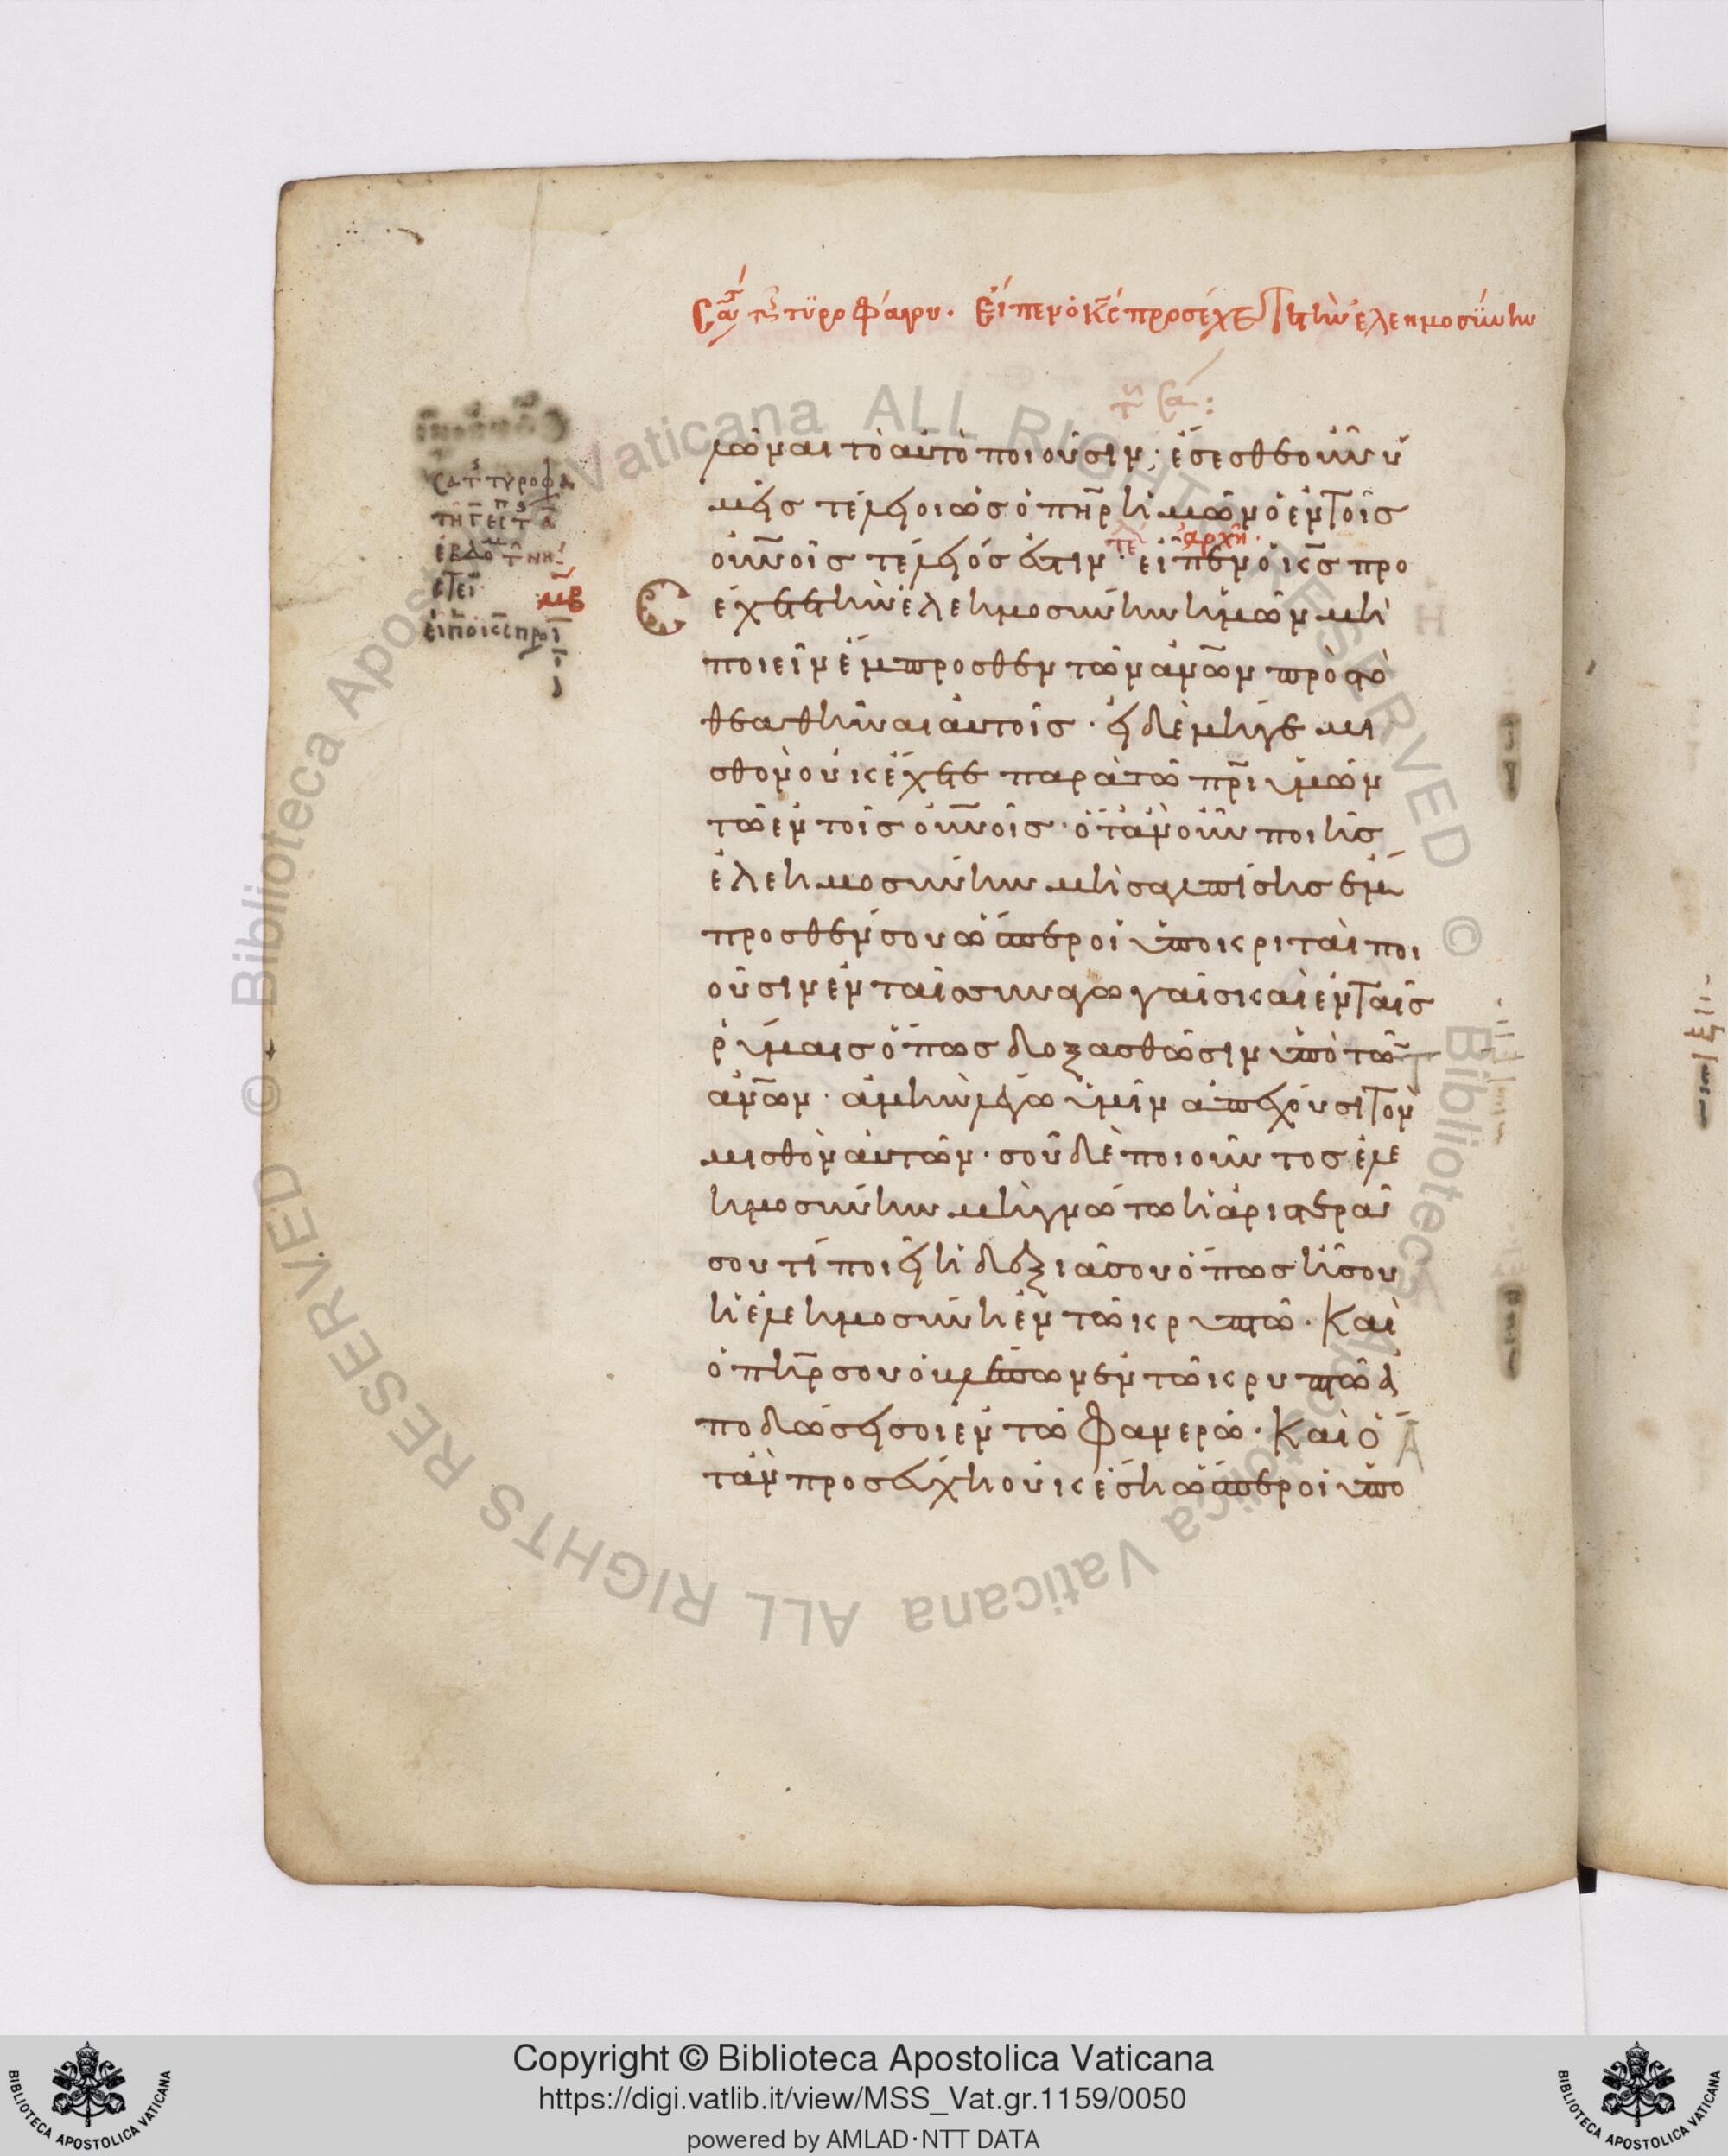 Σα τῆς τυροφάγου. Εἶπεν ὁ κ̅ς̅ προσέχετε τὴν ἐλεημοσύνην
λῶναι τὸ αὐτὸ ποιοῦσιν· ἔσεσθε οὖν ὑ
μεῖς τέλειοι ὡς ὁ π̅η̅ρ̅ ἡμῶν ὁ ἐν τοῖς
τε ἀρχὴ
οὐ̅ν̅οῖς τέλειός ἐστιν· εἶπεν ὁ κ̅ς̅ προ
έχετε τὴν ἐλεημοσύνην ἡμῶν μὴ
ποιεῖν ἔμπροσθεν τῶν ἀν̅ων πρὸς τὸ
θεαθῆναι αὐτοῖς· εἰ δὲ μήγε μι
σθὸν οὐκ ἔχετε παρὰ τῶ π̅ρ̅ι ὑμῶν
τῶ ἐν τοῖς οὐ̅ν̅οῖς· ὅταν οὖν ποιῆς
ἐλεημοσύνην μὴ σαλπίσης ἔμ
προσθέν σου ὥσπερ οἱ ὑποκριταὶ ποι
οῦσιν ἐν ταῖς συναγωγαῖς καὶ ἐν ταῖς
ῥύμαις ὅπως δοξασθῶσιν ὑπὸ τῶν
ἀν̅ων· ἀμὴν λέγω ὑμῖν ἀπέχουσι τὸν
μισθὸν αὐτῶν· σοῦ δὲ ποιοῦντος ἐλε
ημοσύνην μὴ γνώτω ἡ ἀριστερά
σου τί ποιεῖ ἡ δεξιά σου ὅπως ἦ σου
ἡ ἐλεημοσύνη ἐν τῶ κρυπτῶ· Καὶ
ὁ π̅η̅ρ̅ σου ὁ βλέπων ἐν τῶ κρυπτῶ ἀ
ποδώσει σοι ἐν τῶ φανερῶ· Καὶ ὅ
ταν προσεύχη οὐκ ἔση ὥσπερ οἱ ὑπο
Σατ τυροφα
ἔτει
μβ
Copyright © Biblioteca Apostolica Vaticana
https://digi.vatlib.it/view/MSS_Vat.gr.1159/0050
powered by AMLAD·NTT DATA
BIBLIOTECA APOSTOLICA VATICANA
BIBLIOTECA APOSTOLICA VATICANA
© Biblioteca Apostolica Vaticana ALL RIGHTS RESERVED © Biblioteca Apostolica Vaticana ALL RIGHTS RESERVED